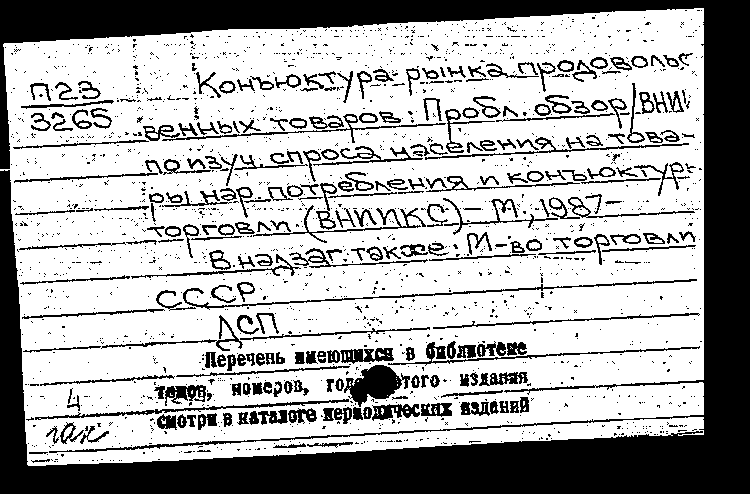 П23
3265
Конъюктура рынка продовольс
венных товаров: Пробл. обзор/ВНИИ
по изуч. спроса населения на това-
ры нар. потребления и конъюктуры
торговли (ВНИИКС).- М., 1987-
В надзаг. также: М-во торговли
СССР.
ДСП.
Перечень имеющихся в библиотеке
томов, номеров, годов этого издания
смотри в каталоге периодических изданий
4